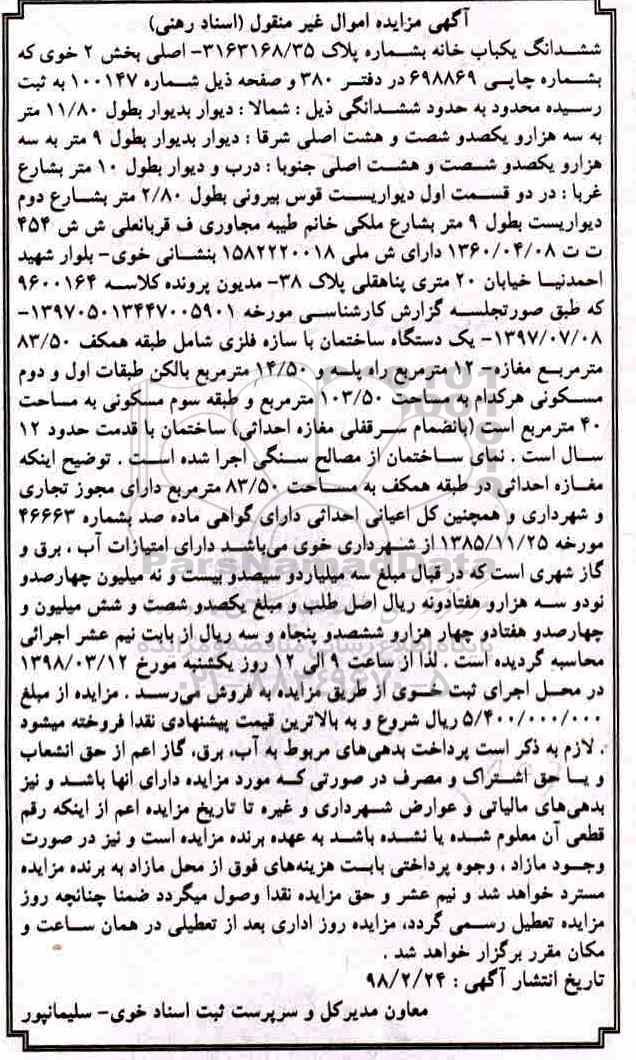 آگهی مزایده اموال غیر منقول (اسناد رهنی)
ششدانگ یکباب خانه بشماره پلاک ۳۱۶۳۱۶۸/۳۵- اصلی بخش ۲ خوی که
بشماره چاپی ۶۹۸۸۶۹ در دفتر ۳۸۰ و صفحه ذیل شماره ۱۰۰۱۴۷ به ثبت
رسیده محدود به حدود ششدانگی ذیل : شمالا : دیوار بدیوار بطول ۱۱/۸۰ متر
به سه هزارو یکصدو شصت و هشت اصلی شرقا : دیوار بدیوار بطول ۹ متر به سه
هزارو یکصدو شصت و هشت اصلی جنوبا : درب و دیوار بطول ۱۰ متر بشارع
غربا : در دو قسمت اول دیواریست قوس بیرونی بطول ۲/۸۰ متر بشارع دوم
دیواریست بطول ۹ متر بشارع ملکی خانم طیبه مجاوری ف قربانعلی ش ش ۴۵۴
ت ت ۱۳۶۰/۰۴/۰۸ دارای ش ملی ۱۵۸۲۲۲۰۰۱۸ بنشانی خوی- بلوار شهید
احمدنیا خیابان ۲۰ متری پناهقلی پلاک ۳۸- مدیون پرونده کلاسه ۹۶۰۰۱۶۴
که طبق صورتجلسه گزارش کارشناسی مورخه ۱۳۹۷۰۵۰۱۳۴۴۷۰۰۵۹۰۱-
۱۳۹۷/۰۷/۰۸- یک دستگاه ساختمان با سازه فلزی شامل طبقه همکف ۸۳/۵۰
مترمربع مغازه- ۱۲ مترمربع راه پله و ۱۴/۵۰ مترمربع بالکن طبقات اول و دوم
مسکونی هرکدام به مساحت ۱۰۳/۵۰ مترمربع و طبقه سوم مسکونی به مساحت
۴۰ مترمربع است (بانضمام سرقفلی مغازه احداثی) ساختمان با قدمت حدود ۱۲
سال است . نمای ساختمان از مصالح سنگی اجرا شده است . توضیح اینکه
مغازه احداثی در طبقه همکف به مساحت ۸۳/۵۰ مترمربع دارای مجوز تجاری
و شهرداری و همچنین کل اعیانی احداثی دارای گواهی ماده صد بشماره ۴۶۶۶۳
مورخه ۱۳۸۵/۱۱/۲۵ از شهرداری خوی می‌باشد دارای امتیازات آب ، برق و
گاز شهری است که در قبال مبلغ سه میلیاردو سیصدو بیست و نه میلیون چهارصدو
نودو سه هزارو هفتادونه ریال اصل طلب و مبلغ یکصدو شصت و شش میلیون و
چهارصدو هفتادو چهار هزارو ششصدو پنجاه و سه ریال از بابت نیم عشر اجرائی
محاسبه گردیده است . لذا از ساعت ۹ الی ۱۲ روز یکشنبه مورخ ۱۳۹۸/۰۳/۱۲
در محل اجرای ثبت خوی از طریق مزایده به فروش می‌رسد . مزایده از مبلغ
۵/۴۰۰/۰۰۰/۰۰۰ ریال شروع و به بالاترین قیمت پیشنهادی نقدا فروخته میشود
. لازم به ذکر است پرداخت بدهی‌های مربوط به آب، برق، گاز اعم از حق انشعاب
و یا حق اشتراک و مصرف در صورتی که مورد مزایده دارای انها باشد و نیز
بدهی‌های مالیاتی و عوارض شهرداری و غیره تا تاریخ مزایده اعم از اینکه رقم
قطعی آن معلوم شده یا نشده باشد به عهده برنده مزایده است و نیز در صورت
وجود مازاد ، وجوه پرداختی بابت هزینه‌های فوق از محل مازاد به برنده مزایده
مسترد خواهد شد و نیم عشر و حق مزایده نقدا وصول میگردد ضمنا چنانچه روز
مزایده تعطیل رسمی گردد، مزایده روز اداری بعد از تعطیلی در همان ساعت و
مکان مقرر برگزار خواهد شد .
تاریخ انتشار آگهی : ۹۸/۲/۲۴
معاون مدیرکل و سرپرست ثبت اسناد خوی- سلیمانپور
ParsNamadData
پایگاه اطلاع رسانی مناقصه و مزایده
۰۲۱-۸۸۳۴۹۶۷۰-۵